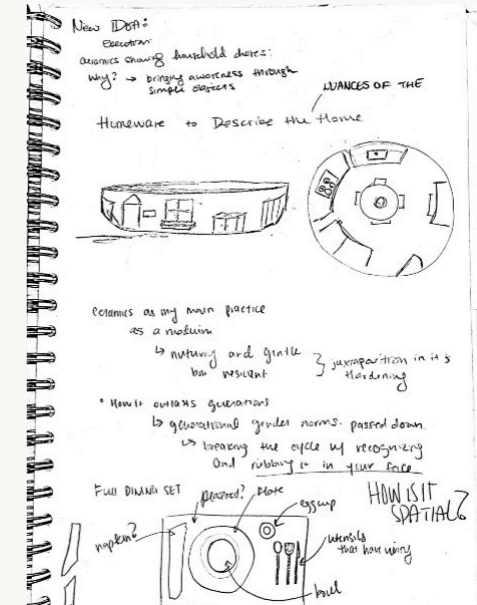 New IDEA:
Execution:
ceramics showing household chores:
why? → bringing awareness through
simple objects
NUANCES OF THE
Homeware to Describe the Home
ceramics as my main practice
as a medium
↳ nurturing and gentle
but resilient
} juxtaposition in it's
Hardening
• How it outlasts generations
↳ generational gender norms. passed down.
↳ breaking the cycle w/ recognizing
and rubbing it in your face
HOW IS IT
SPATIAL?
FULL DINING SET
placemat?
plate
eggcup
napkin?
utensils
that have
bowl